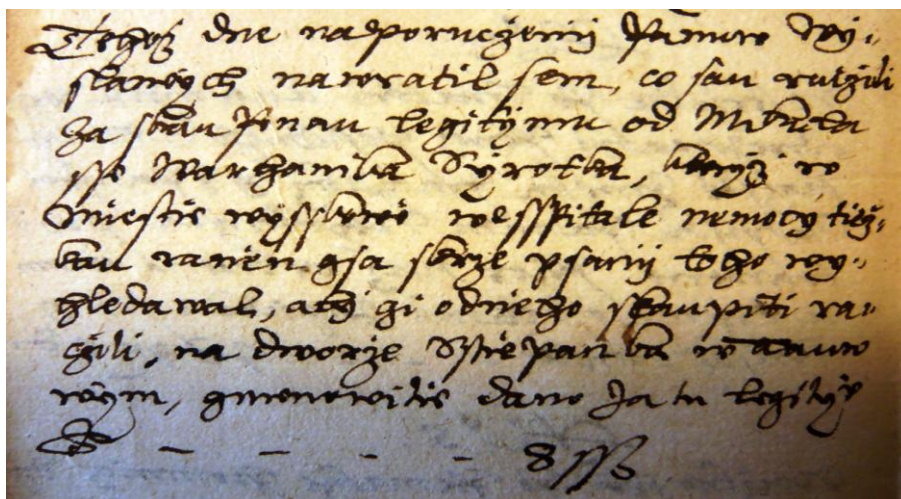 Tehož dne na poruczenij Panuw wy-
slanych nawratil sem, co sau raczili
za skaupenau legitymu od Mikula
sse Warhanika Syrotka, kteryz w
miestie wysskowie we sspitale nemoczy tiež-
kau ranien gsa skrze psanij toho wy-
hledawal, aby gi od nieho skaupiti ra-
czili, na dworze Sstiepanka w
wým, gmenowitie dano za tu legity
8 ss